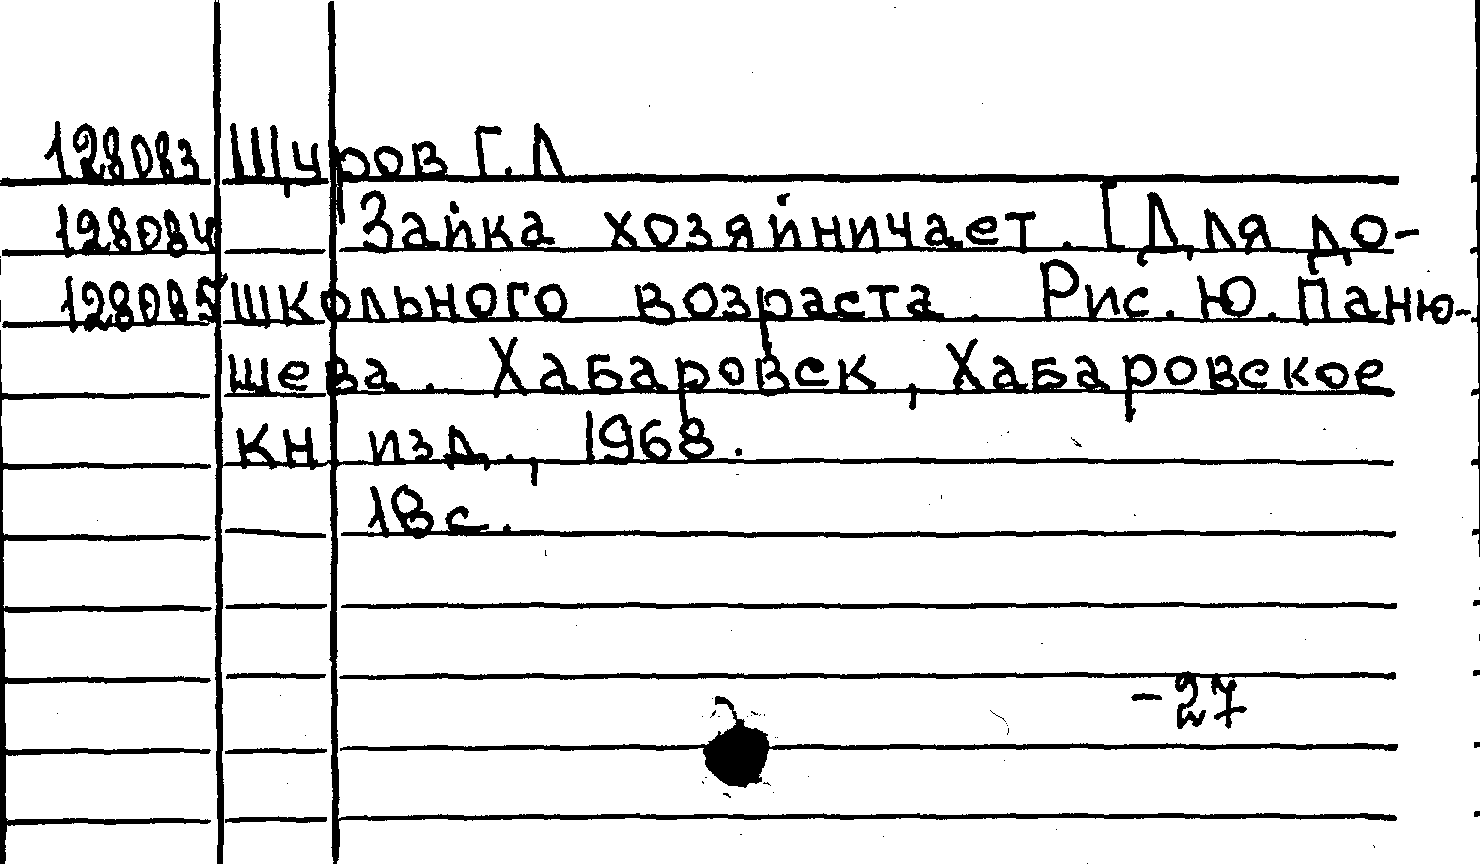 128083 Щуров Г.Л
128084 Зайка хозяйничает. [Для до-
128085 школьного возраста. Рис. Ю. Паню-
щева. Хабаровск, Хабаровское
кн изд., 1968.
18 с.
-27